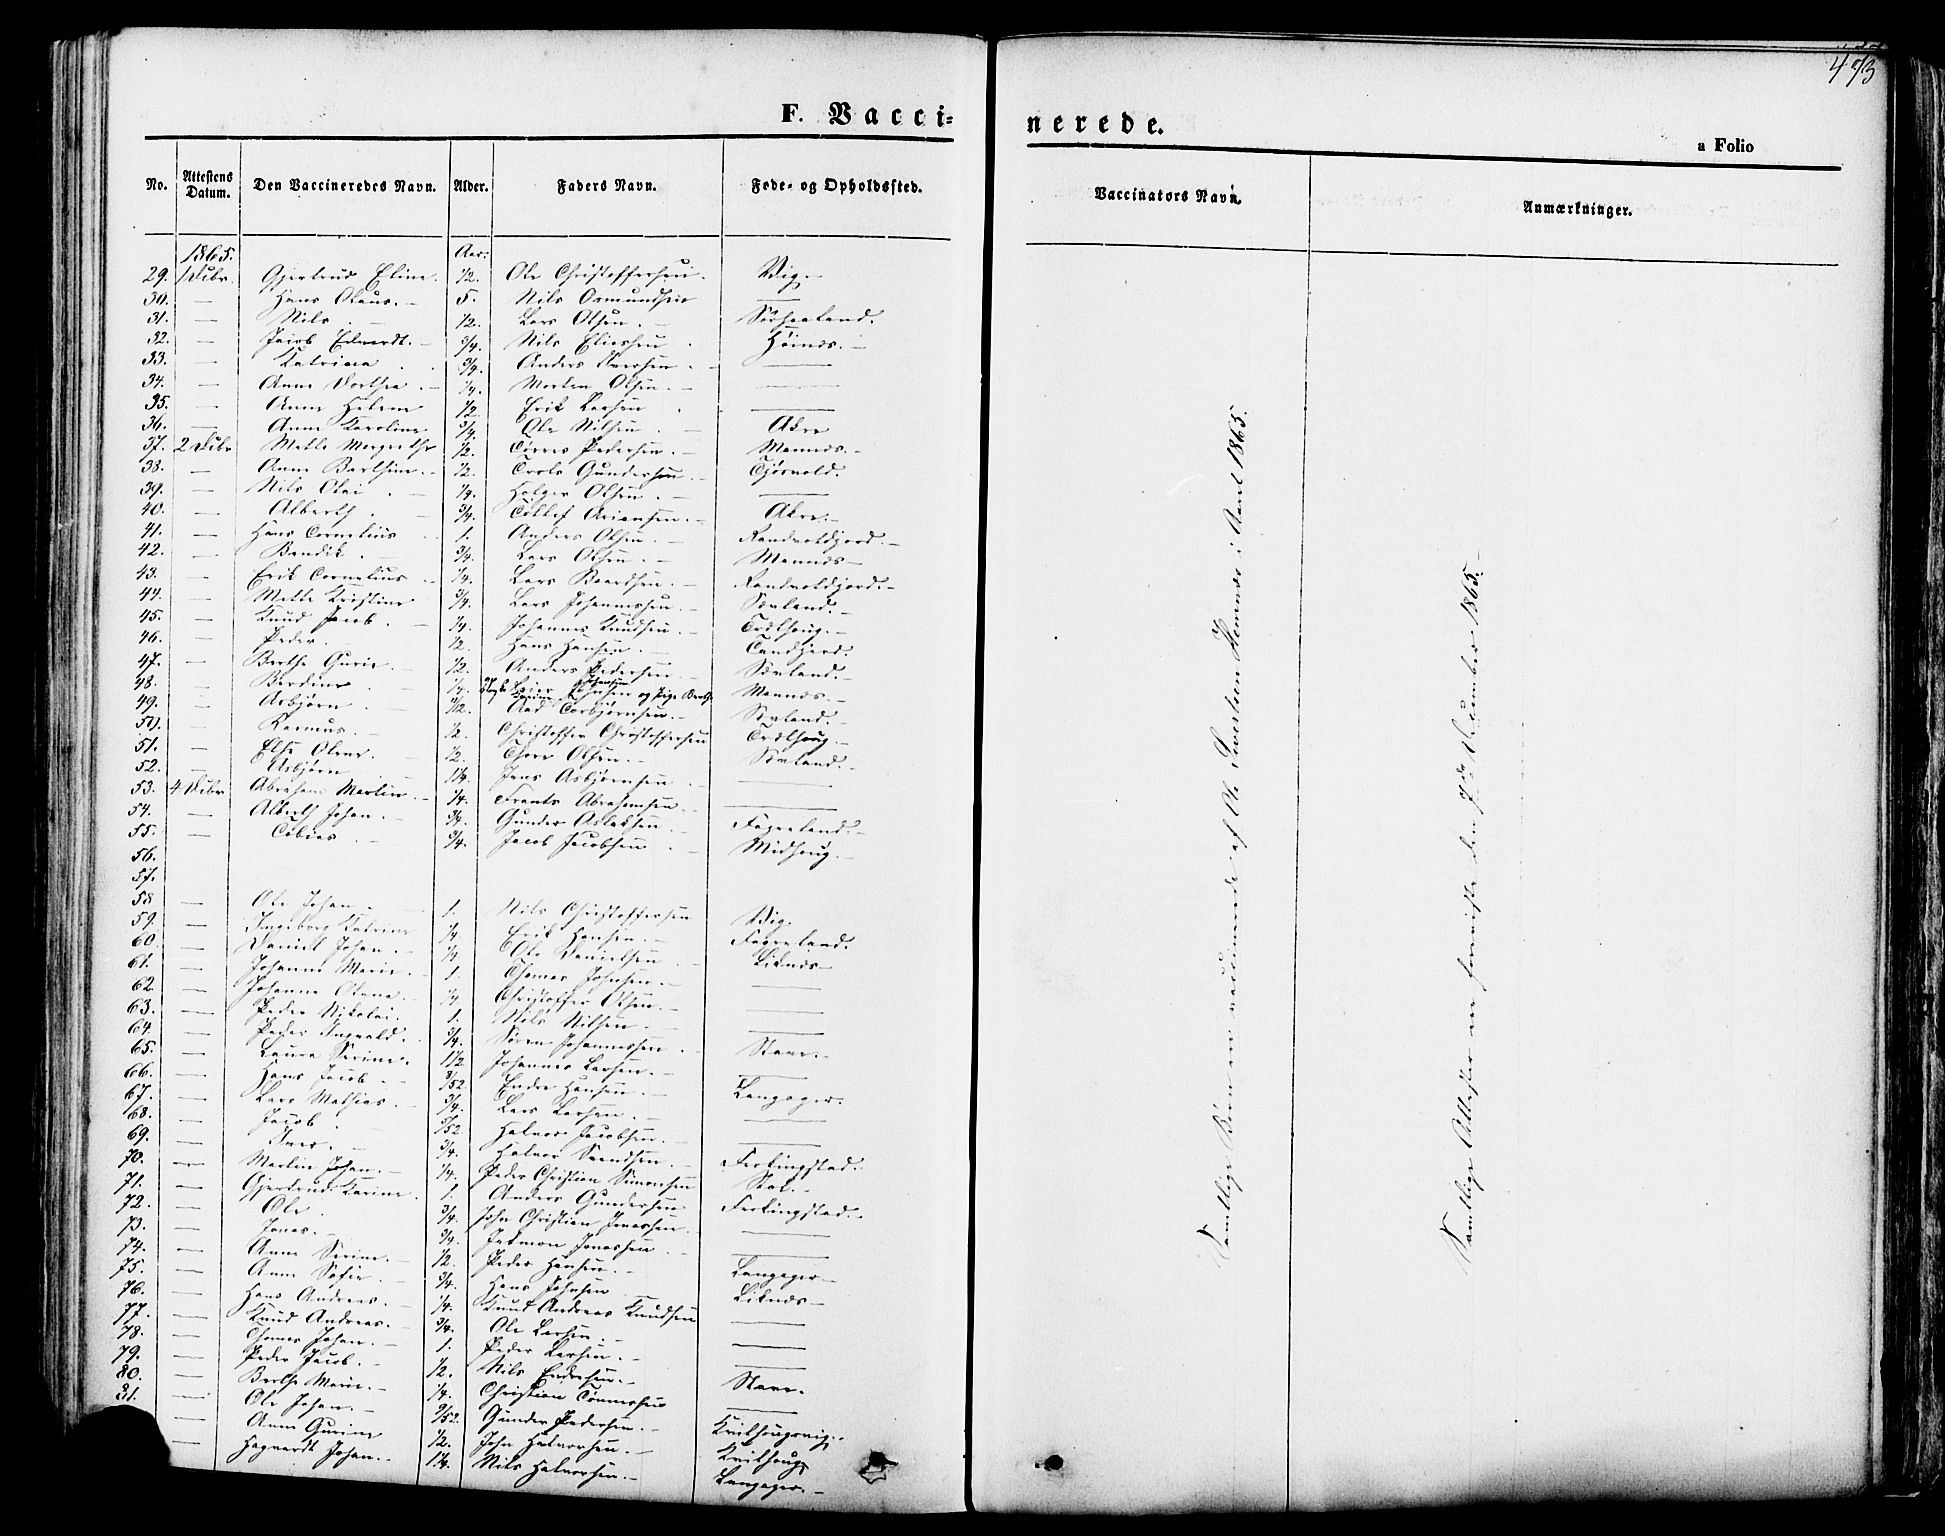 473
F. Vacci=
nerede.
a Folio
No. Attestens Datum. Den Vaccineredes Navn. Alder. Faders Navn. Føde- og Opholdssted.
Vaccinators Navn. Anmærkninger.
1865. Aar:
29. Gjertrud Eline. 1/2. Ole Christoffersen. Vig.
30. — Hans Olaus. 5. Nils Osmundsen —
31. — Nils. 1/2. Lars Olsen.
32. — Jacob Edvardt. 3/4. Nils Eliassen. Høinæs.
33. — Katrina 3/4. Anders Iversen. —
34. — Anne Dorthea. 1/4. Morten Olsen. —
35. — Anne Helene 1/2. Erik Larsen. —
36. — Anne Karoline 3/4. Ole Nilsen. Adre
37. 2 Mette Margrethe 1/2. Tørres Pedersen. Mannæs.
38. — Anne Barthine. 1/2. Trols Gundersen. Tjösvold.
39. — Nils Olai. 1/4. Holger Olsen. —
40. — Alberth. 3/4. Tollef Ariansen. Akre.
41. — Hans Cornelius 1. Anders Olsen.
42. — Bendik. 3/4. Lars Olsen. Mannæs
43. — Erik Cornelius 1/4. Lars Baardsen.
44. — Mette Kristine 3/4. Lars Johannessen. Sævland.
45. — Knud Jacob. 1/4. Johannes Knudsen.
46. — Peder. 1/2. Hans Hansen.
47. — Berthe Gurie. 1/2. Anders Pedersen. Sævland.
48. — Berdine 1/4. og Pige Berthe Mannæs.
49. — Asbjørn. Aad Torbjørnsen. Sævland.
50. — Rasmus. 1/2. Christoffer Christoffersen
51. — Else Olene. 1/2. Thore Olsen. Sævland.
52. — Asbjørn Jens Asbjørnsen —
53. 4 Abraham Martin. 1/4. Frants Abrahamsen. —
54. — Alberth Johan. 3/4. Gunder Asladsen. Fagerland.
55. — Tobias. 3/4. Jacob Jacobsen. Midhoug.
56.
57.
58 — Ole Johan. 1. Nils Christoffersen Vig.
59. — Ingeborg Katrine 1/4. Erik Hansen. Fagerland.
60. — Daniel Johan. 1/4. Ole Danielsen. Liknæs
61. — Johanne Marie. 1. Thomas Johnsen. —
62. — Johanne Olene. 1/4. Christoffer Olsen. —
63. — Peder Nikolai. 1. Nils Nilsen. —
64. — Peder Ingvald. 3/4. Søren Johannessen. Stave.
65. — Laura Serine. 1 1/2 Johannes Larsen. —
66. — Hans Jacob. Endre Hansen. Langager.
67. — Lars Mathias. 3/4. Lars Larsen. —
68. — Jacob. Halvor Jacobsen. —
69. — Iver. 3/4. Halvor Svendsen. Ferkingstad.
70. — Martin Johan. 1/4. Peder Christian Simonsen Stol.
71. — Gjertrud Karine. 1. Anders Gundersen Ferkingstad.
72. — Ole. 3/4. John Christian Jonassen. —
73. — Jonas. 3/4. Salmon Jonassen. —
74. — Anne Serine. 1/2. Peder Hansen. Langager
75. — Anne Sofie. 3/4. Hans Johnsen Liknæs
76. — Hans Andreas. 1/4. Knud Andreas Knudsen —
77. — Knud Andreas. 3/4. Ole Larsen. —
78. — Thomas Johan. 1. Peder Larsen. —
79. — Peder Jacob. 1/2. Nils Endresen. Stave.
80. — Berthe Marie. 1/4. Christian Tønnessen —
81. — Ole Johan. Gunder Pedersen. Kvilhougvig.
— Anne Gurine 1/2. John Halvorsen. Kvilhoug
— Hagvardt Johan. Nils Halvorsen. Langager.
Samtlige Børn ere vaccinerede af Ole Sivertsen Hemnæs i Aaret 1865.
Samtlige Attester ere foreviste den 7de December 1865.